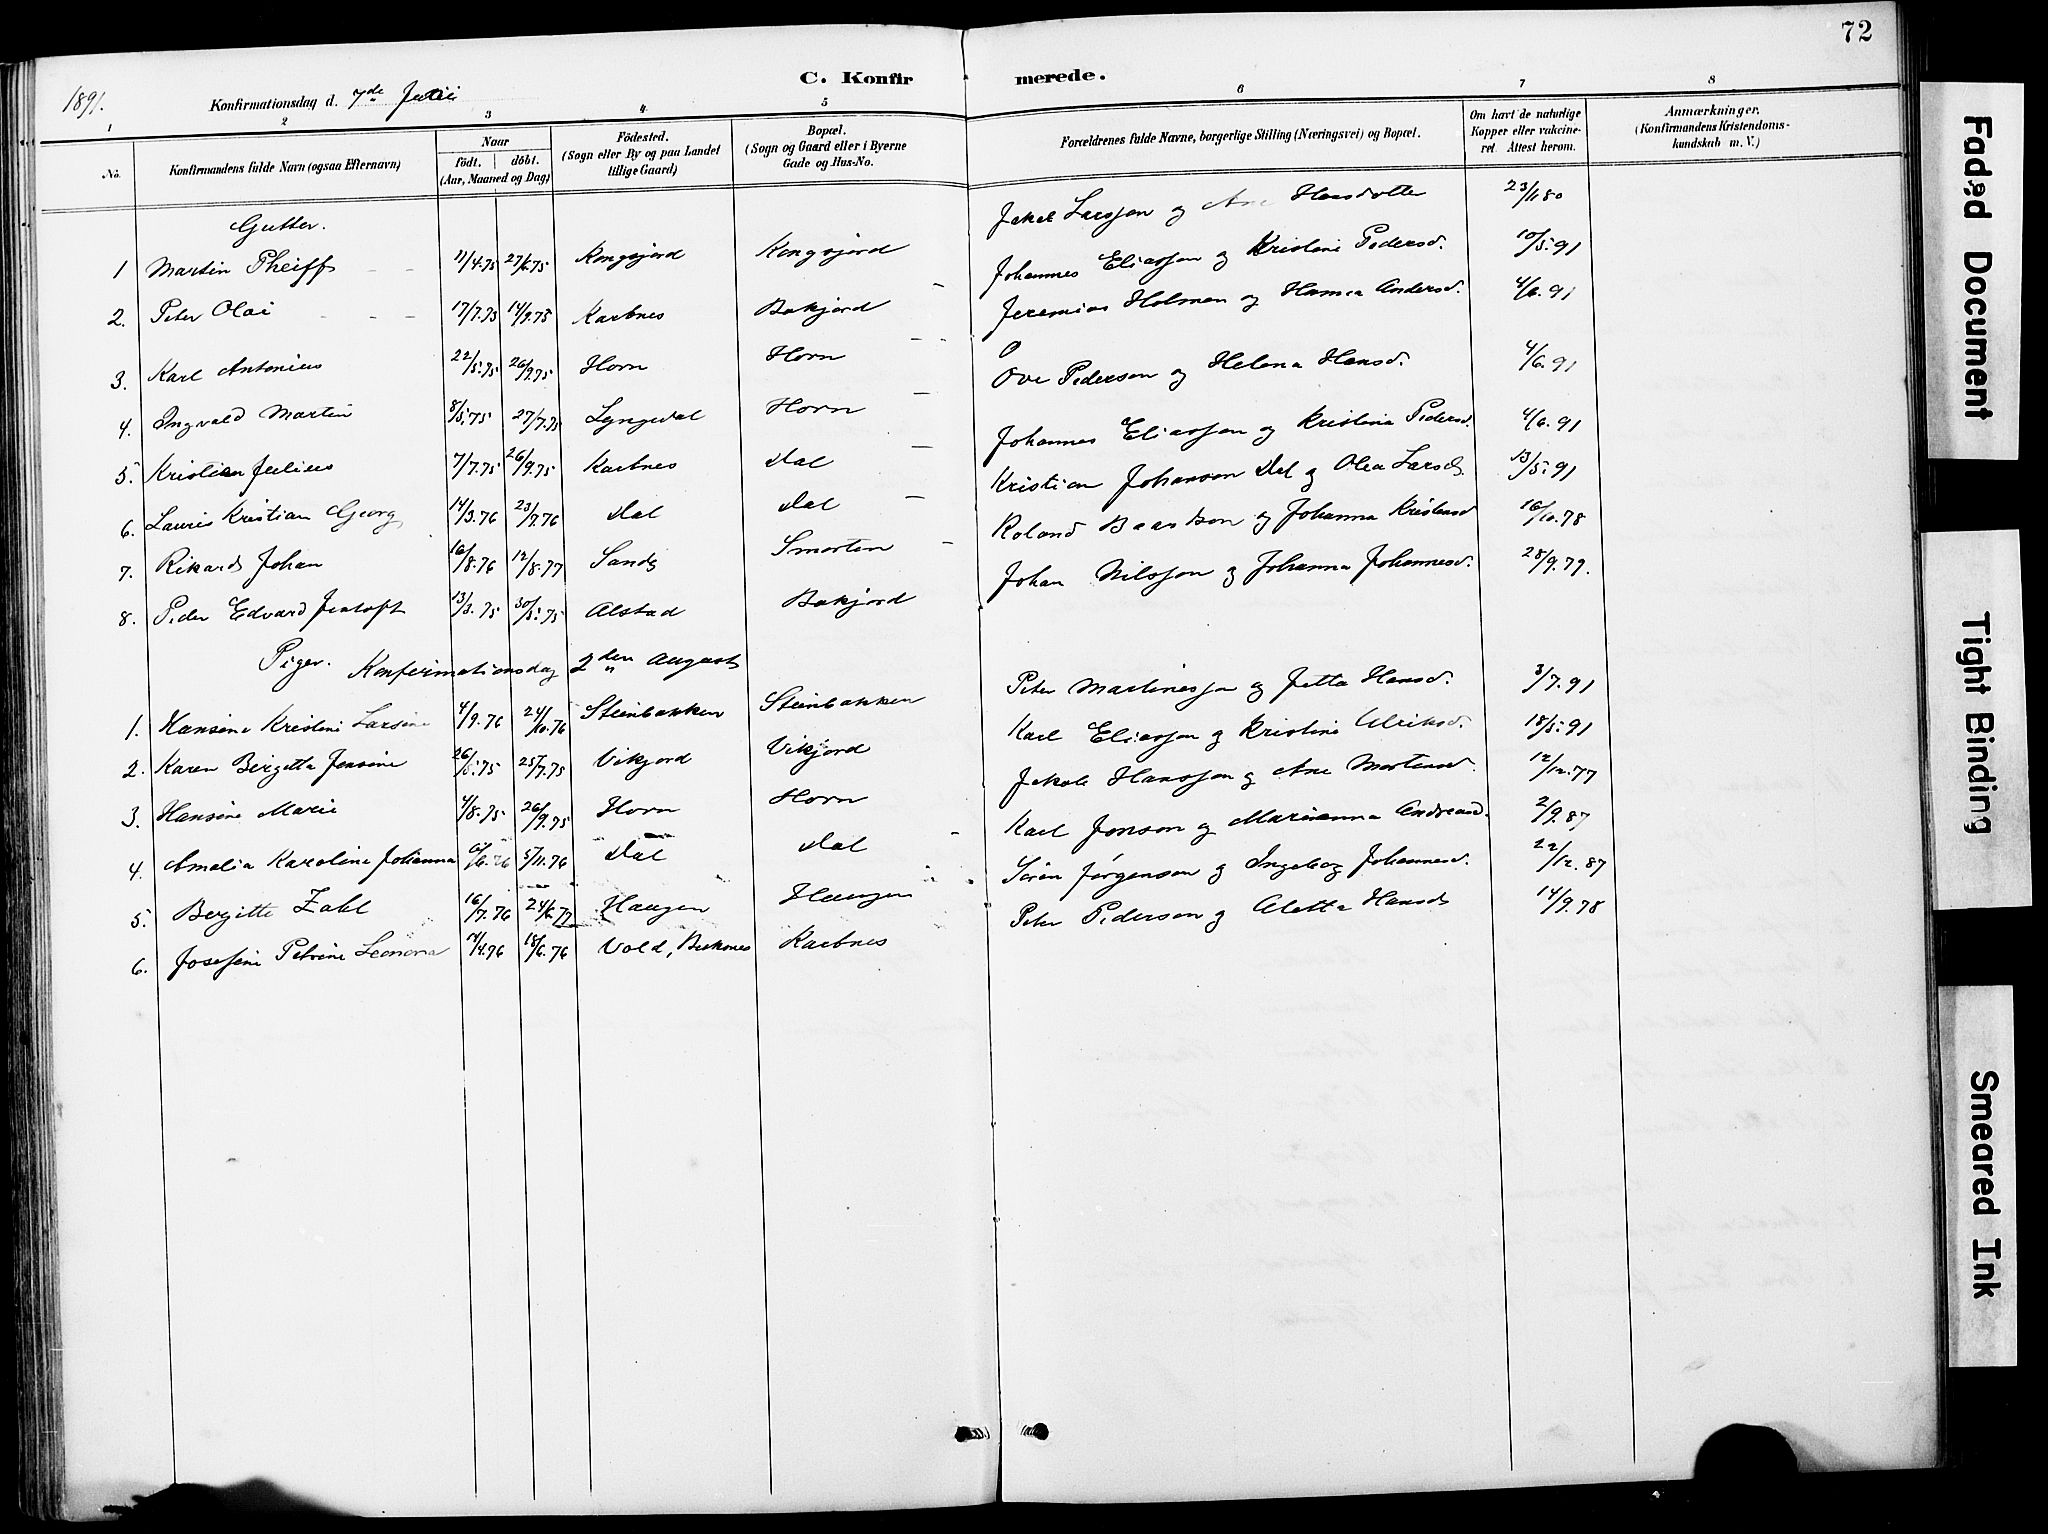 72
C. Konfirmerede.
1891. Konfirmationsdag d. 7de Juni
1 2 3 4 5 6 7 8
No. Konfirmandens fulde Navn (ogsaa Efternavn) Naar födt. döbt. (Aar, Maaned og Dag) Födested. (Sogn eller By og paa Landet tillige Gaard) Bopæl. (Sogn og Gaard eller i Byerne Gade og Hus-No. Forældrenes fulde Navne, borgerlige Stilling (Næringsvei) og Bopæl. Om havt de naturlige Kopper eller vakcineret. Attest herom. Anmærkninger. (Konfirmandens Kristendomskundskab m. V.)
Gutter.
1 Martin Pheiff 11/4.75 27/6.75 Kongsjord Kongsjord Jakob Larssen og Ane Hansdotter 23/11 80
2. Peter Olai 17/7.75 14/9.75 Karbnes Bakjord Johannes Eliassen og Kristine Pedersd. 10/5.91
3. Karl Antonius 22/5.75 26/9.75 Horn Horn Jeremias Holmen og Hanna Andersd. 4/6.91
4. Ingvald Martin 8/5.75 27/7.75 Lyngedal Horn Ove Pederson og Helena Hansd. 4/6.91
5. Kristian Julius 7/7.75 26/9.75 Karbnes Dal Johannes Eliassen og Kristina Pedersd. 4/6.91
6. Lauris Kristian Georg 14/3.76 23/7.76 Dal Dal Kristian Johanson Dal og Olea Larsd. 13/5.91
7. Rikard Johan 16/8.76 12/8.77 Sand Smorten Roland Baardson og Johanna Kristensd 16/10.78
8. Peder Edvard Jentoft 13/3.75 30/5.75 Alstad Bakjord Johan Nilssen og Johanna Johannesd. 28/9.79.
Piger. Konfirmationsdag 2den August
1. Hansine Kristine Larsine 4/9.76 24/10.76 Steinbakken Steinbakken Peter Martinessen og Jetta Hansd. 3/7.91
2. Karen Bergitta Jensine 26/5.75 25/7.75 Vikjord Vikjord Karl Eliassen og Kristine Ulriksd. 18/5.91
3. Hansine Marie 4/8.75 26/9.75 Horn Horn Jakob Hanssen og Ane Mortensd. 12/12.77
4. Amalia Karoline Johanna 6/6.76 5/11.76 Dal Dal Karl Jonson og Marianna Andreasd. 2/9.87
5. Bergitte Zahl 16/7.76 24/6.77 Haugen Haugen Sören Jørgenson og Ingeborg Johannesd. 22/12.87
6. Josefine Petrine Leonora 14/4.76 18/6.76 Vold, Buksnes Karbnes Peter Pederson og Aletta Hansd 14/9.78
Faded Document
Tight Binding
Smeared Ink